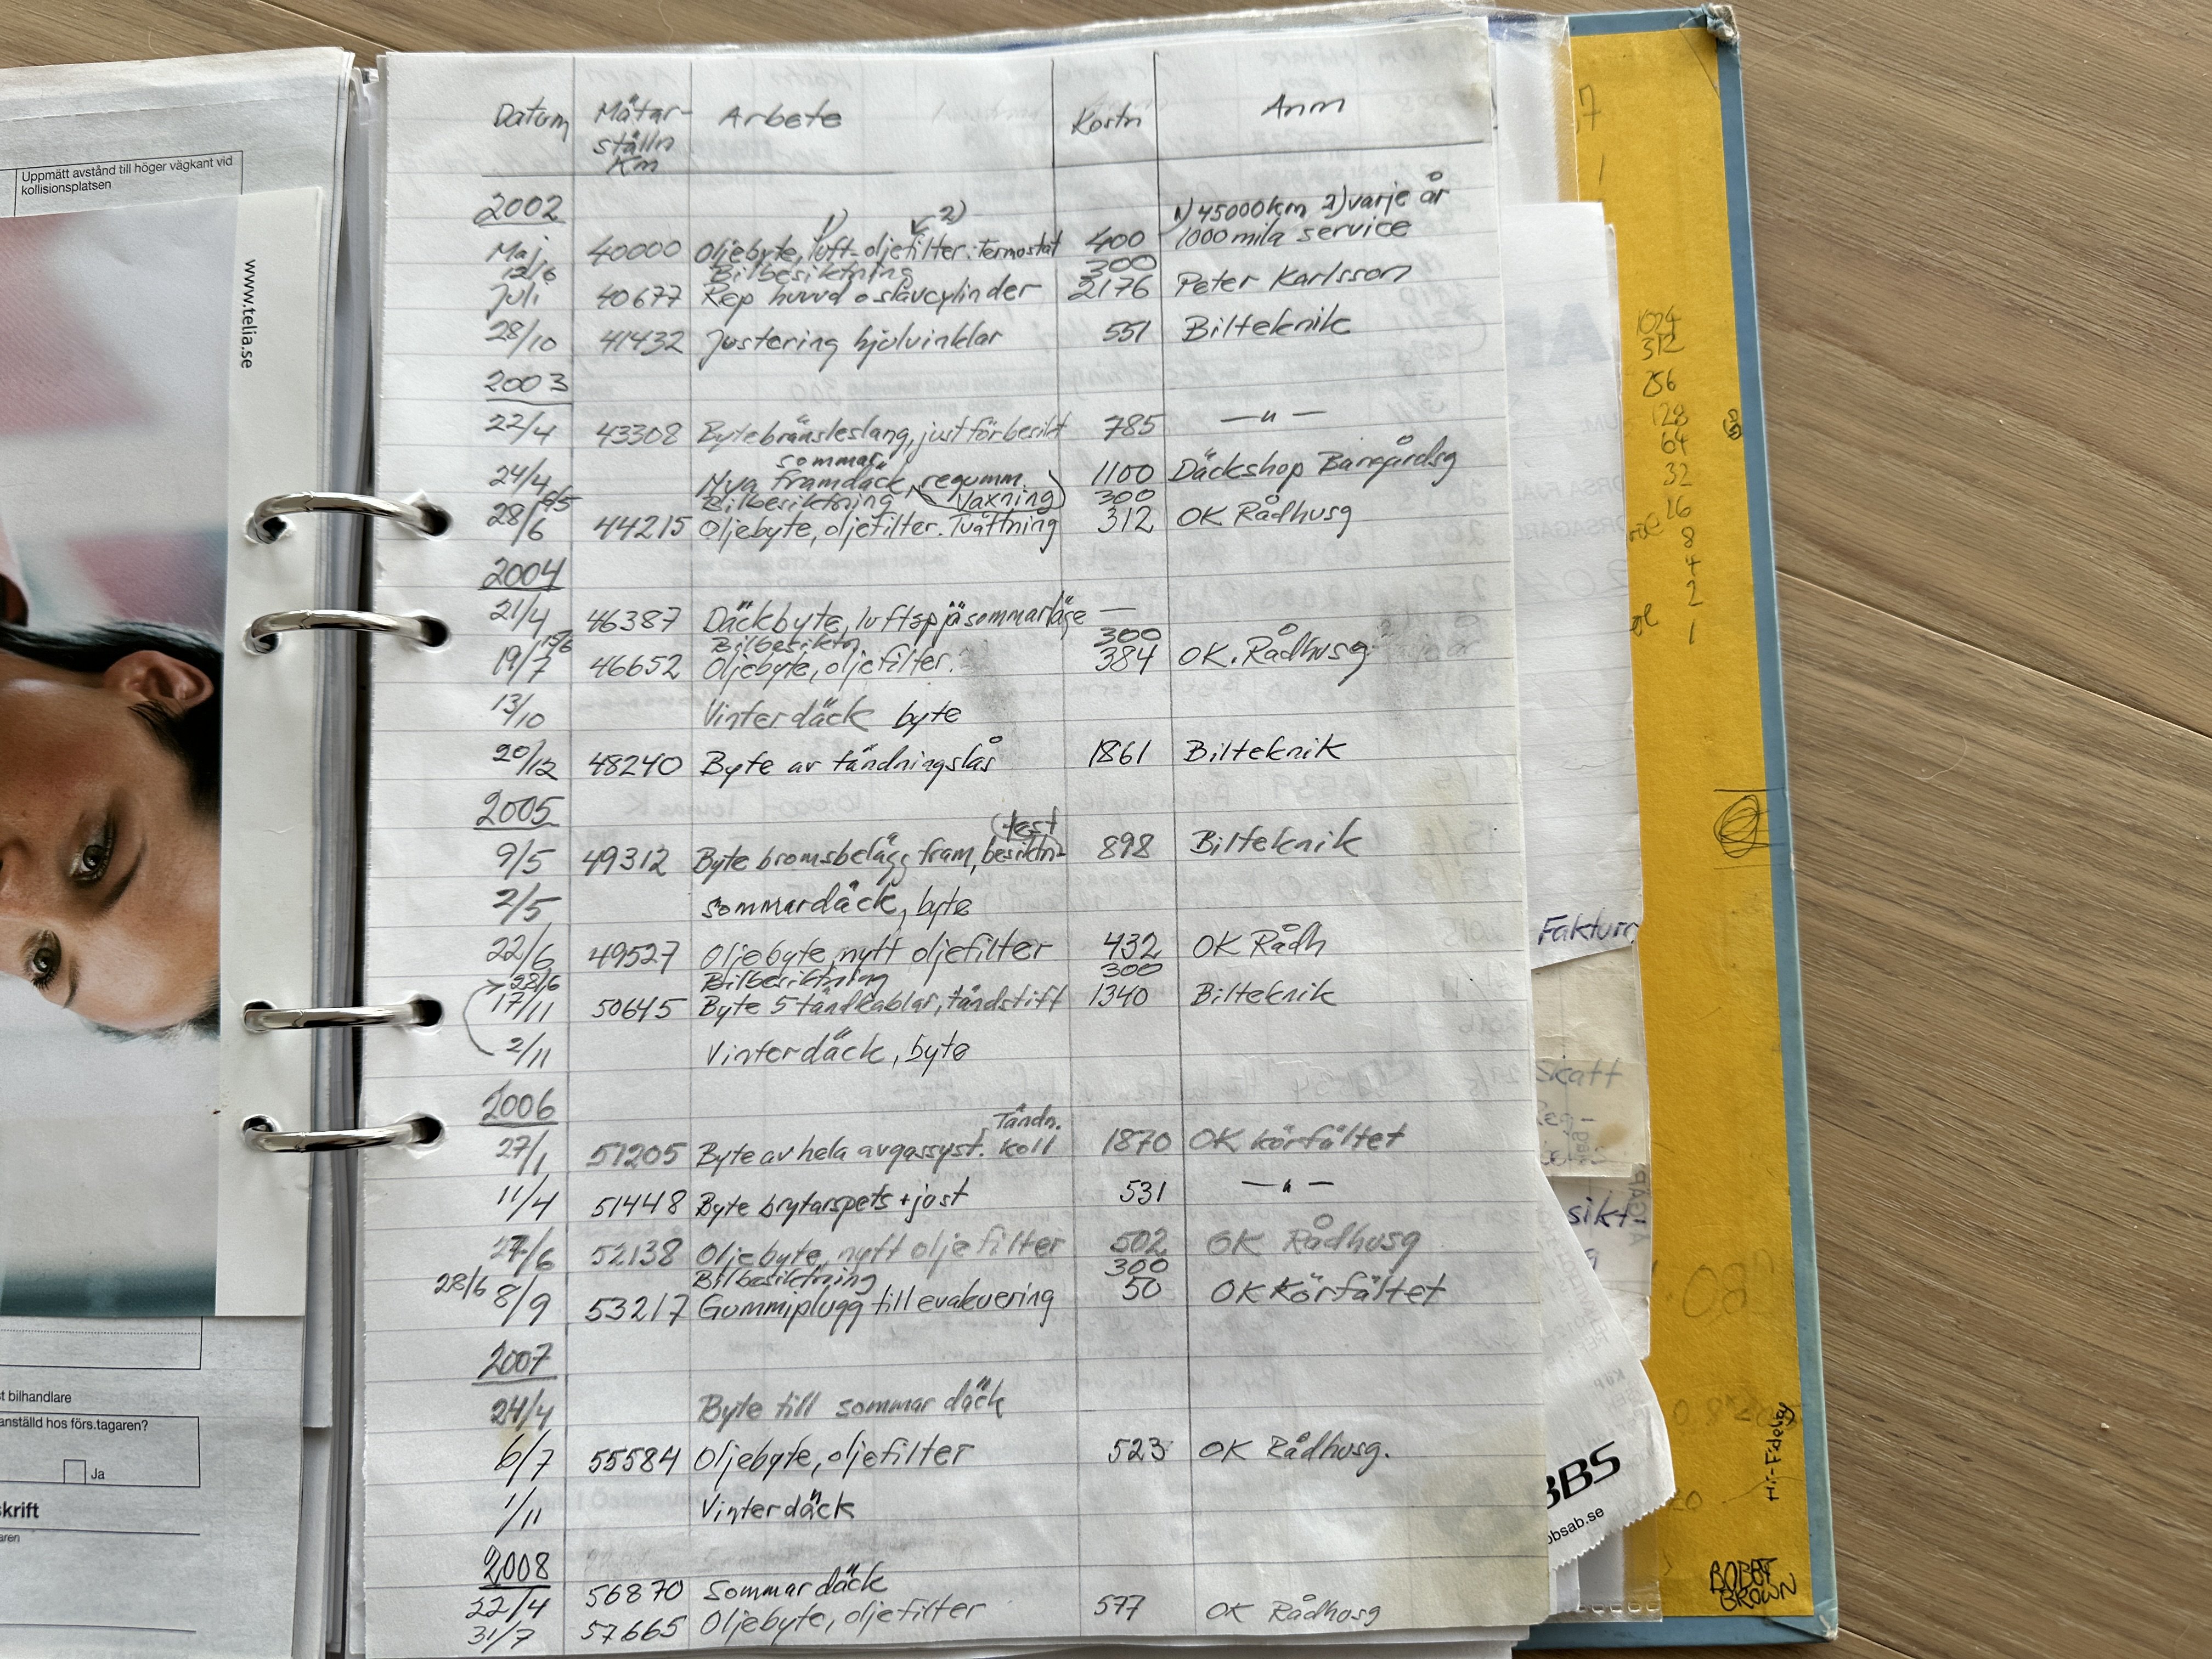 Datum Mätar- Arbete Kostn Anm
ställn
Km
2002
1) 2) 1) 45000km 2) varje år
Maj 40000 Oljebyte, luft- oljefilter. Termostat 400 1000 mila service
12/6 Bilbesiktning 300
Juli 40677 Rep huvud o slavcylinder 2176 Peter Karlsson
28/10 41432 Justering hjulvinklar 551 Bilteknik
2003
22/4 43308 Byte bränsleslang, just förbesikt 785 — " —
sommar
24/4 Nya framdäck, regumm. 1100 Däckshop Bangårdsg
Bilbesiktning (Vaxning) 300
28/6 44215 Oljebyte, oljefilter. Tvättning 312 OK Rådhusg
2004
21/4 46387 Däckbyte, luftspj sommarläge —
15/6 Bilbesiktn 300
19/7 46652 Oljebyte, oljefilter. 384 OK. Rådhusg
13/10 Vinterdäck byte
20/12 48240 Byte av tändningslås 1861 Bilteknik
2005
(test
9/5 49312 Byte bromsbelägg fram, besiktn- 898 Bilteknik
2/5 sommardäck, byte
22/6 49527 Oljebyte, nytt oljefilter 432 OK Rådh
28/6 Bilbesiktning 300
17/11 50645 Byte 5 tändkablar, tändstift 1340 Bilteknik
2/11 Vinterdäck, byte
2006
Tändn.
27/1 51205 Byte av hela avgassyst. koll 1870 OK körfältet
11/4 51448 Byte brytarspets + just 531 — " —
27/6 52138 Oljebyte, nytt oljefilter 502 OK Rådhusg
28/6 Bilbesiktning 300
8/9 53217 Gummiplugg till evakuering 50 OK Körfältet
2007
24/4 Byte till sommar däck
6/7 55584 Oljebyte, oljefilter 523 OK Rådhusg.
1/11 Vinterdäck
2008
22/4 56870 Sommardäck
31/7 57665 Oljebyte, oljefilter 577 OK Rådhusg
Uppmätt avstånd till höger vägkant vid
kollisionsplatsen
www.telia.se
bilhandlare
anställd hos förs.tagaren?
Ja
krift
aren
Faktura
Skatt
sikt-
BBS
bsab.se
1024
512
256
128
64
32
16
8
4
2
1
Hi-Fidelity
BOBBY
BROWN